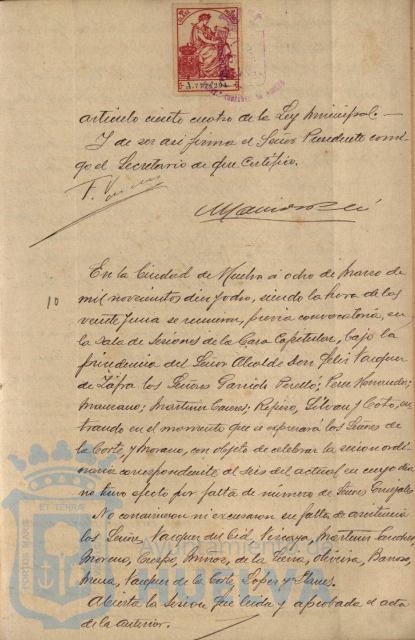 A.7774294
articulo ciento cuatro de la Ley Municipal.
Y de ser asi firma el Señor Presidente conmi-
go el Secretario de que Certifico.
En la Ciudad de Huelva a ocho de Marzo de
10
mil novecientos diez y ocho, siendo la hora de las
veinte y una se reunieron, previa convocatoria, en
la Sala de Sesiones de la Casa Capitular, bajo la
presidencia del Señor Alcalde Don Felix Vazquez
de Zafra los Señores Garrido Perello; Perez Hernandez;
Manzano; Martinez; Silvan; y Coto, en-
trando en el momento que se expresará los Señores
de la Corte, y Morano, con objeto de celebrar la sesion ordi-
naria correspondiente al seis del actual, en cuyo dia
no tuvo efecto por falta de numero de Señores Concejales.
No concurrieron ni excusaron su falta de asistencia
los Señores Vazquez del Cid, Vizcaya, Martinez Sanchez,
Moreno, Crespo, Muñoz, de la Oliveira, Barroso,
Mora, Vazquez de la Corte, Lopez y
Abierta la Sesion, fué leida y aprobada el acta
de la anterior.
ET TERRA
PORTUS MARIS
Ayuntamiento de
HUELVA